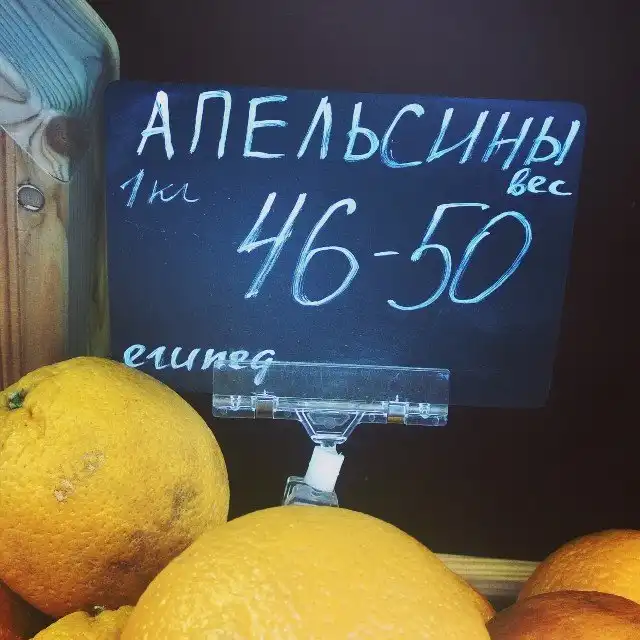 АПЕЛЬСИНЫ
1кг вес
46-50
египед